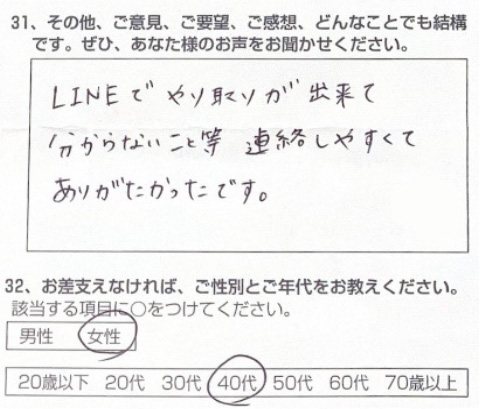 31、その他、ご意見、ご要望、ご感想、どんなことでも結構
です。ぜひ、あなた様のお声をお聞かせください。
LINEでやり取りが出来て
分からないこと等 連絡しやすくて
ありがたかったです。
32、お差支えなければ、ご性別とご年代をお教えください。
該当する項目に○をつけてください。
男性 女性
20歳以下 20代 30代 40代 50代 60代 70歳以上